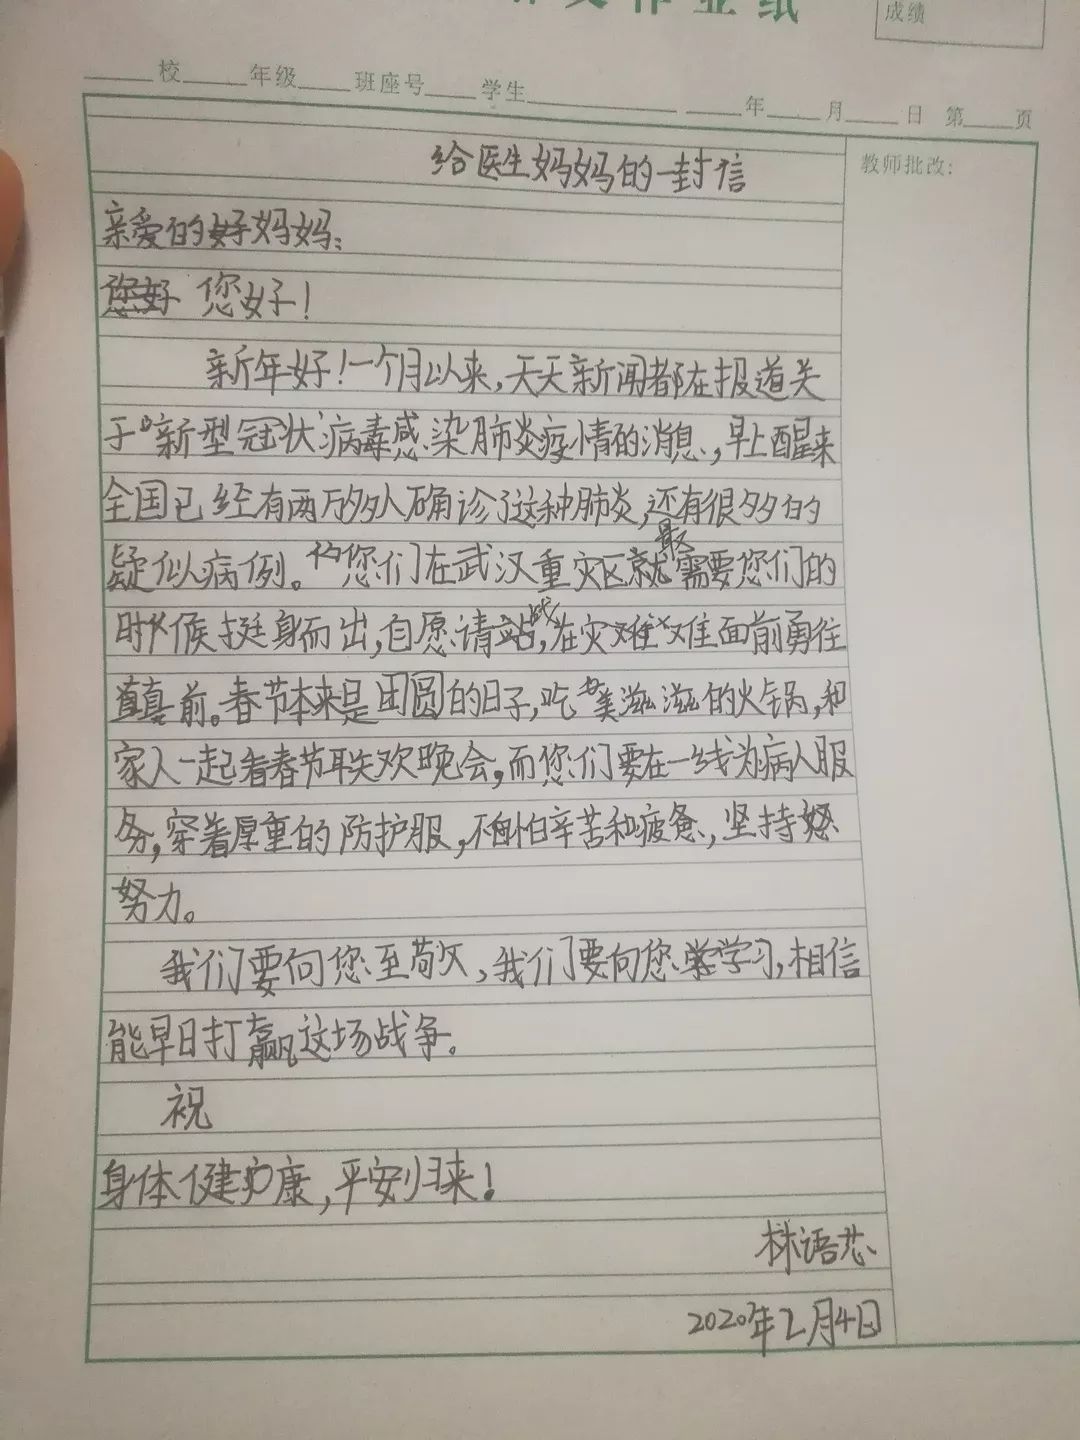 作业纸
成绩
校 年级 班座号 学生 年 月 日 第 页
教师批改:
给医生妈妈的一封信
亲爱的好妈妈:
您好 您好!
新年好!一个月以来,天天新闻都在报道关
于“新型冠状”病毒感染肺炎疫情的消息,早上醒来
全国已经有两万多人确诊了这种肺炎,还有很多的
疑似病例。您们在武汉重灾区就最需要您们的
时候挺身而出,自愿请站战,在灾难难面前勇往
直前。春节本来是团圆的日子,吃美滋滋的火锅,和
家人一起看春节联欢晚会,而您们要在一线为病人服
务,穿着厚重的防护服,不怕辛苦和疲惫,坚持
努力。
我们要向您至敬,我们要向您学学习,相信
能早日打赢这场战争。
祝
身体健康,平安归来!
林语芯
2020年2月4日